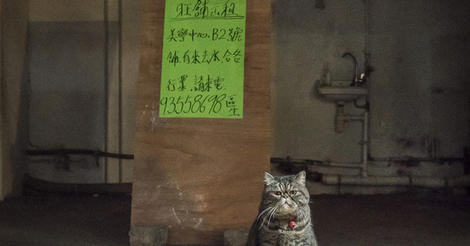 旺舖出租
美寧中心B2號
舖,有來去水,合各
行業,請來電
93558698 區生